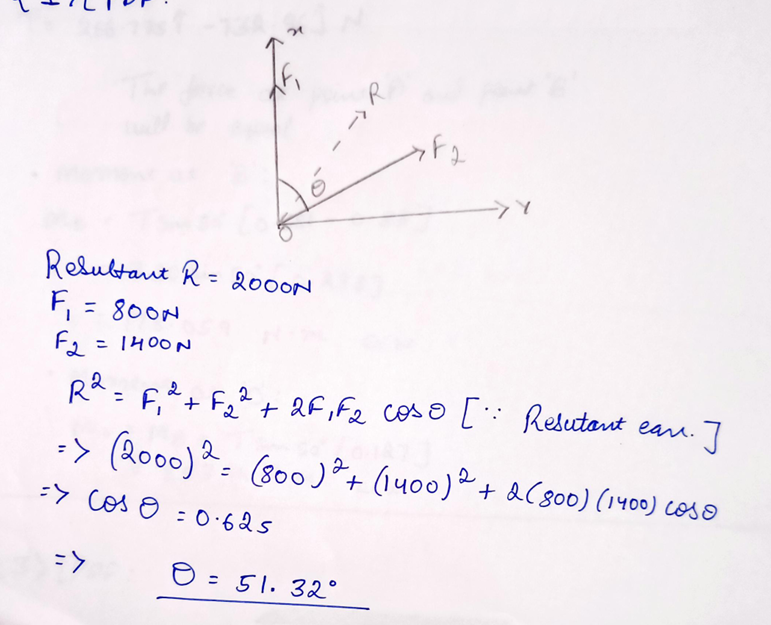 x
F₁
R
F₂
θ
O
Y
Resultant R = 2000N
F₁ = 800N
F₂ = 1400N
R² = F₁² + F₂² + 2F₁F₂ cosθ [∵ Resutant ean.]
=> (2000)² = (800)² + (1400)² + 2(800)(1400) cosθ
=> cos θ = 0.625
=> θ = 51.32°